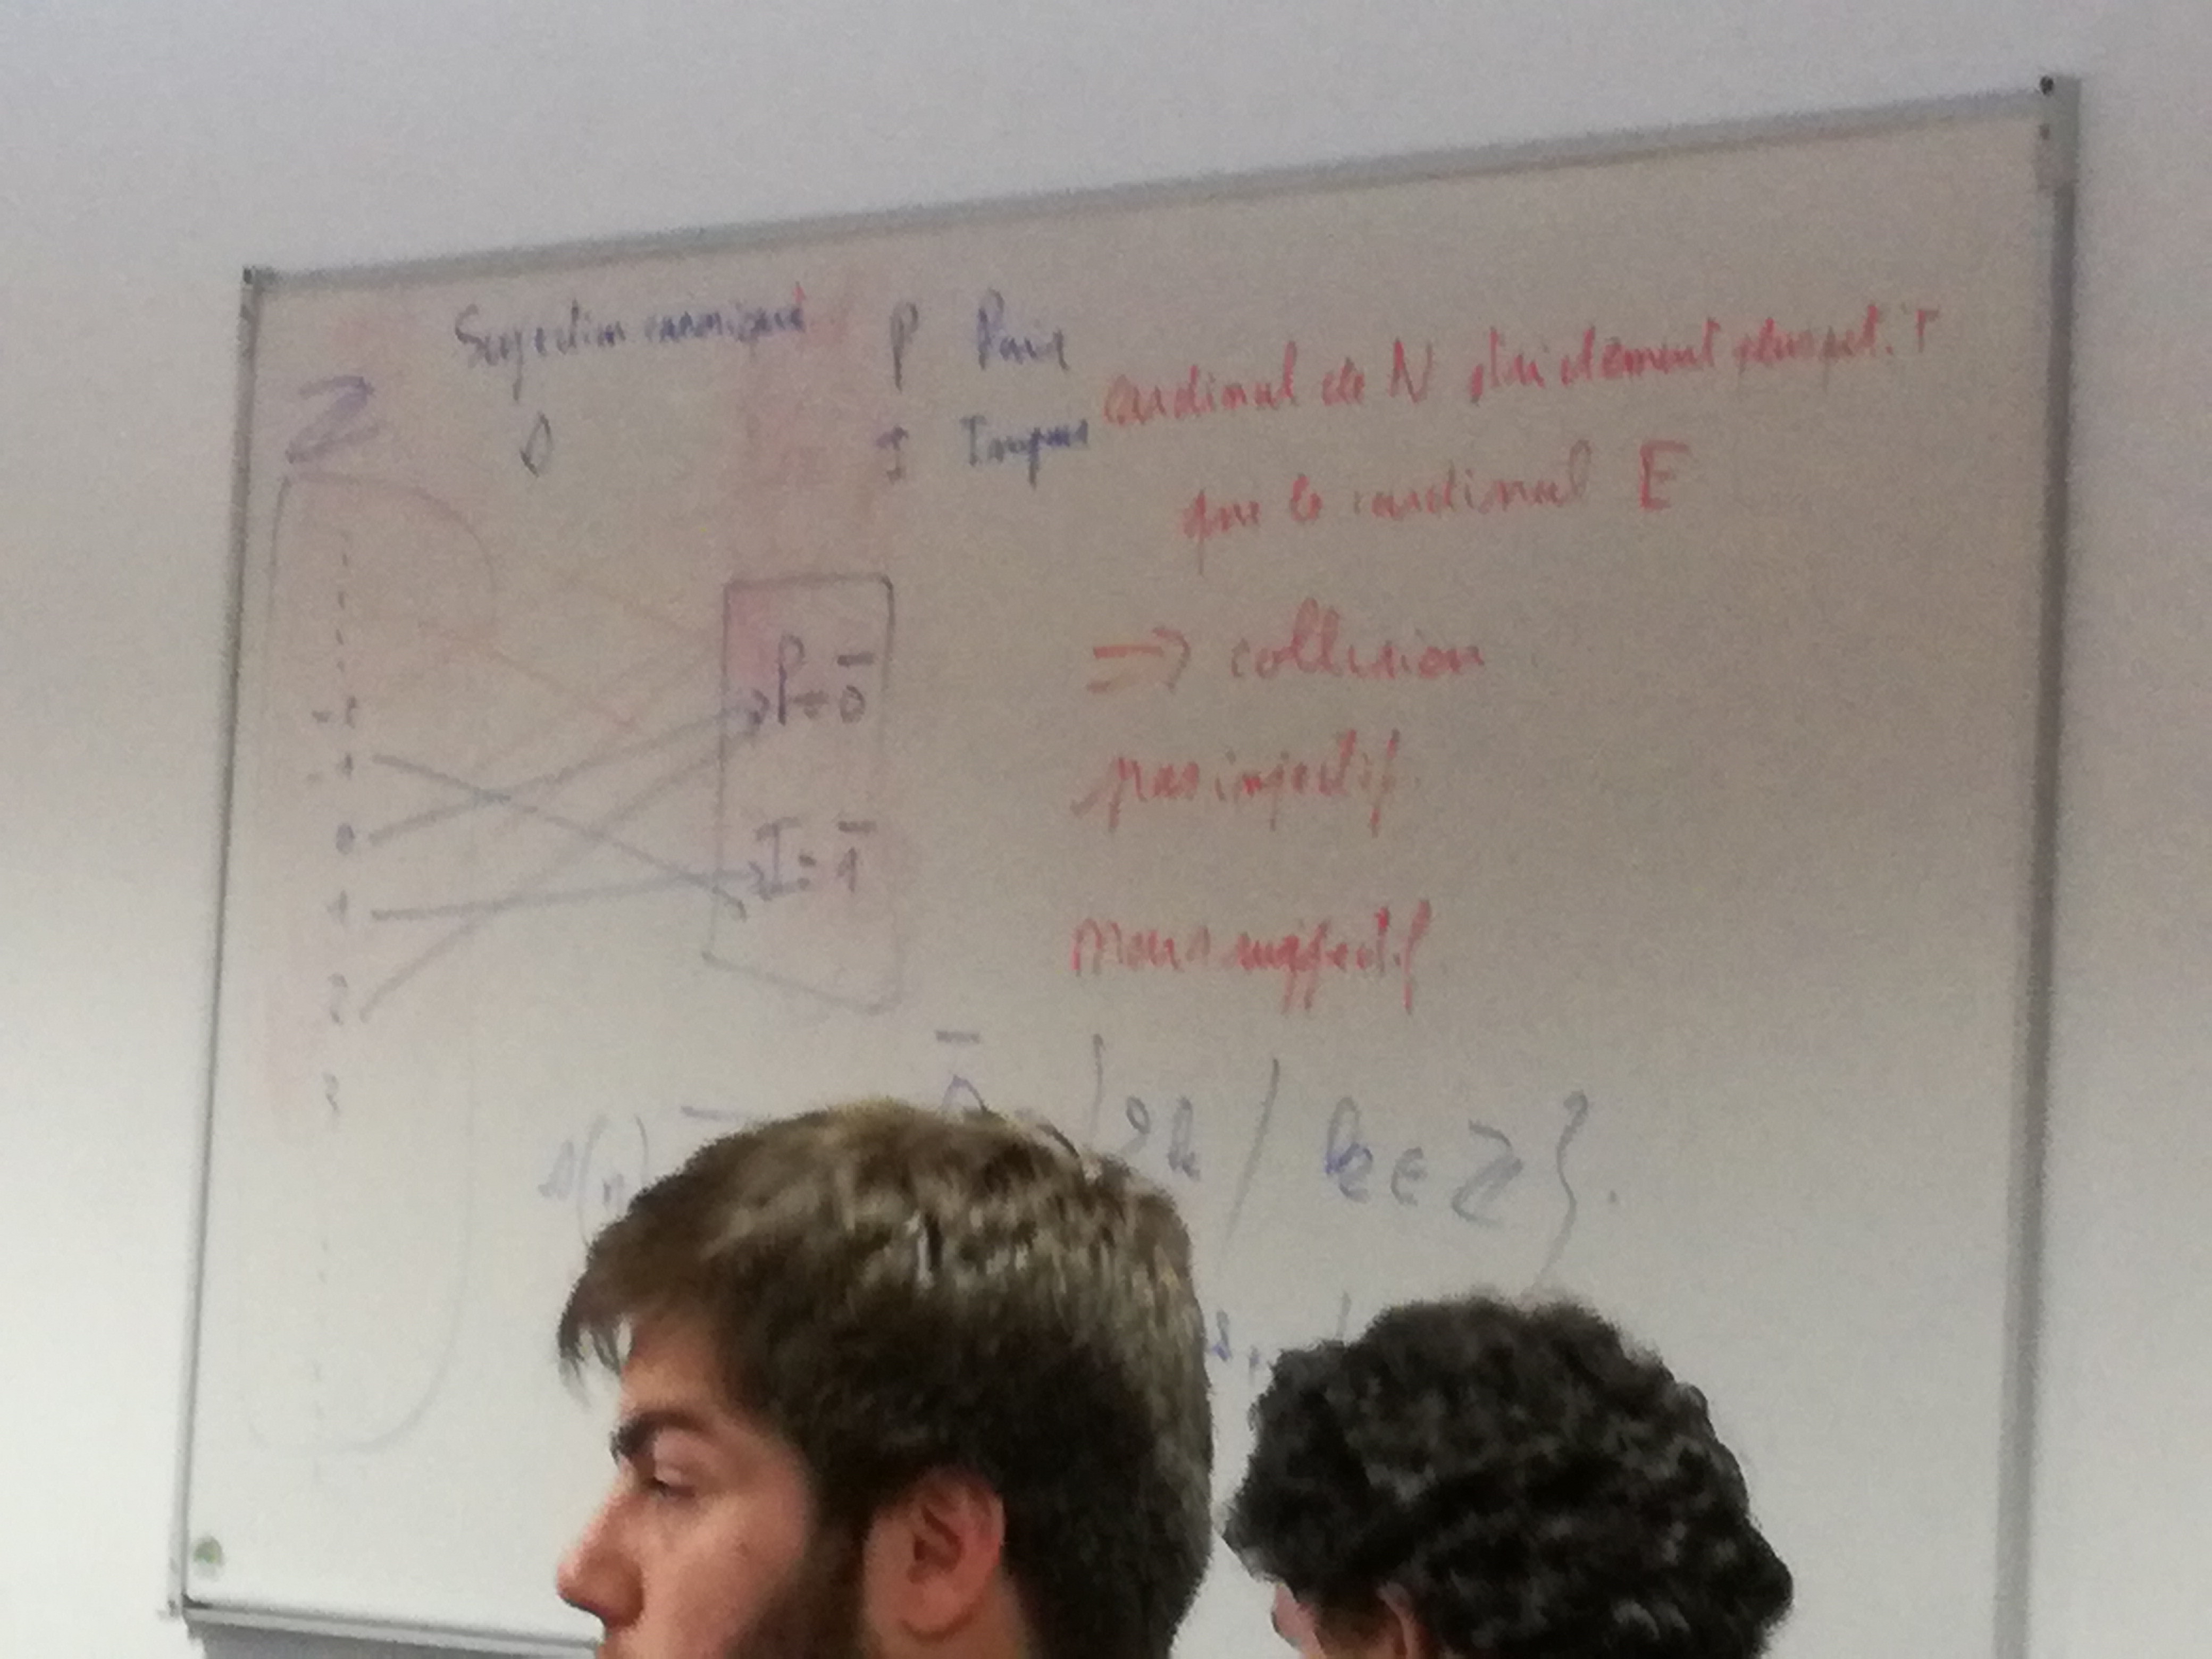 Surjection canonique
P Pair
Z
s
I Impair
cardinal de N strictement plus petit
que le cardinal E
=> collision
pas injectif
mais surjectif
-2
-1
0
1
2
3
P = 0̅
I = 1̅
s(n)
0̅ {2k / k ∈ Z}.